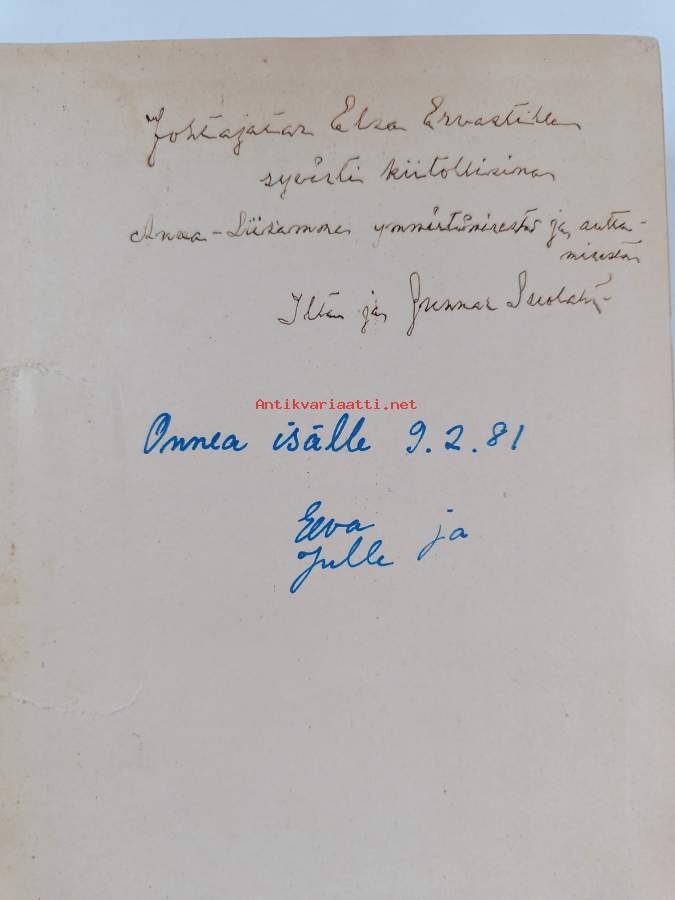 Johtajatar Elsa Ervastille
syvästi kiitollisina
Anna-Liisamme ymmärtämisestä ja autta-
misesta
Ilta ja Gunnar Suolahti
Antikvariaatti.net
Onnea isälle 9.2.81
Eeva ja
Julle